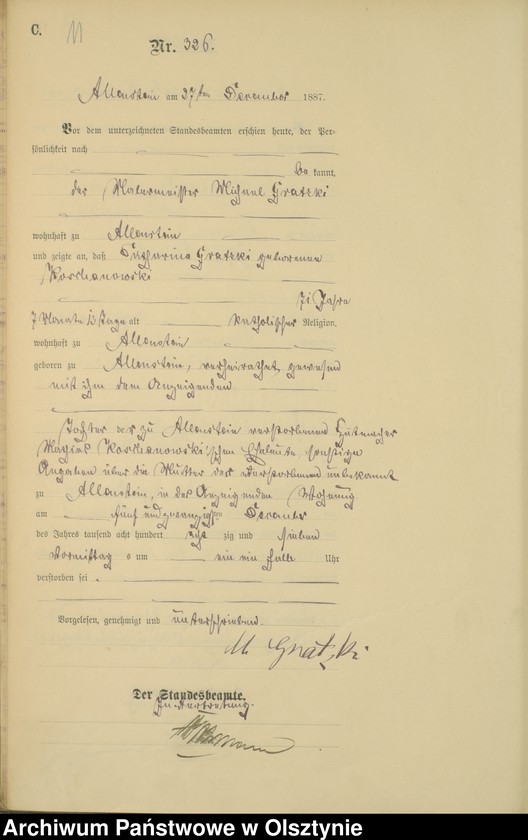 C.
11
Nr. 326.
Allenstein am 27ten December 1887.
Vor dem unterzeichneten Standesbeamten erschien heute, der Per-
sönlichkeit nach
bekannt,
der Malermeister Michael Gratzki
wohnhaft zu Allenstein
und zeigte an, daß Catharina Gratzki geborene
71 Jahre
7 Monate Tage alt katholischer Religion,
wohnhaft zu Allenstein
geboren zu Allenstein, verheirathet gewesen
mit ihm dem Anzeigenden
Tochter der zu Allenstein verstorbenen Hutmacher
Eheleute, sonstige
Angaben über die Mutter der Verstorbenen unbekannt
zu Allenstein, in des Anzeigenden Wohnung
am fünf und zwanzigsten December
des Jahres tausend acht hundert achtzig und sieben
Vormittag s um ein ein halb Uhr
verstorben sei.
Vorgelesen, genehmigt und unterschrieben.
M Gratzki
Der Standesbeamte.
In Vertretung.
Archiwum Państwowe w Olsztynie